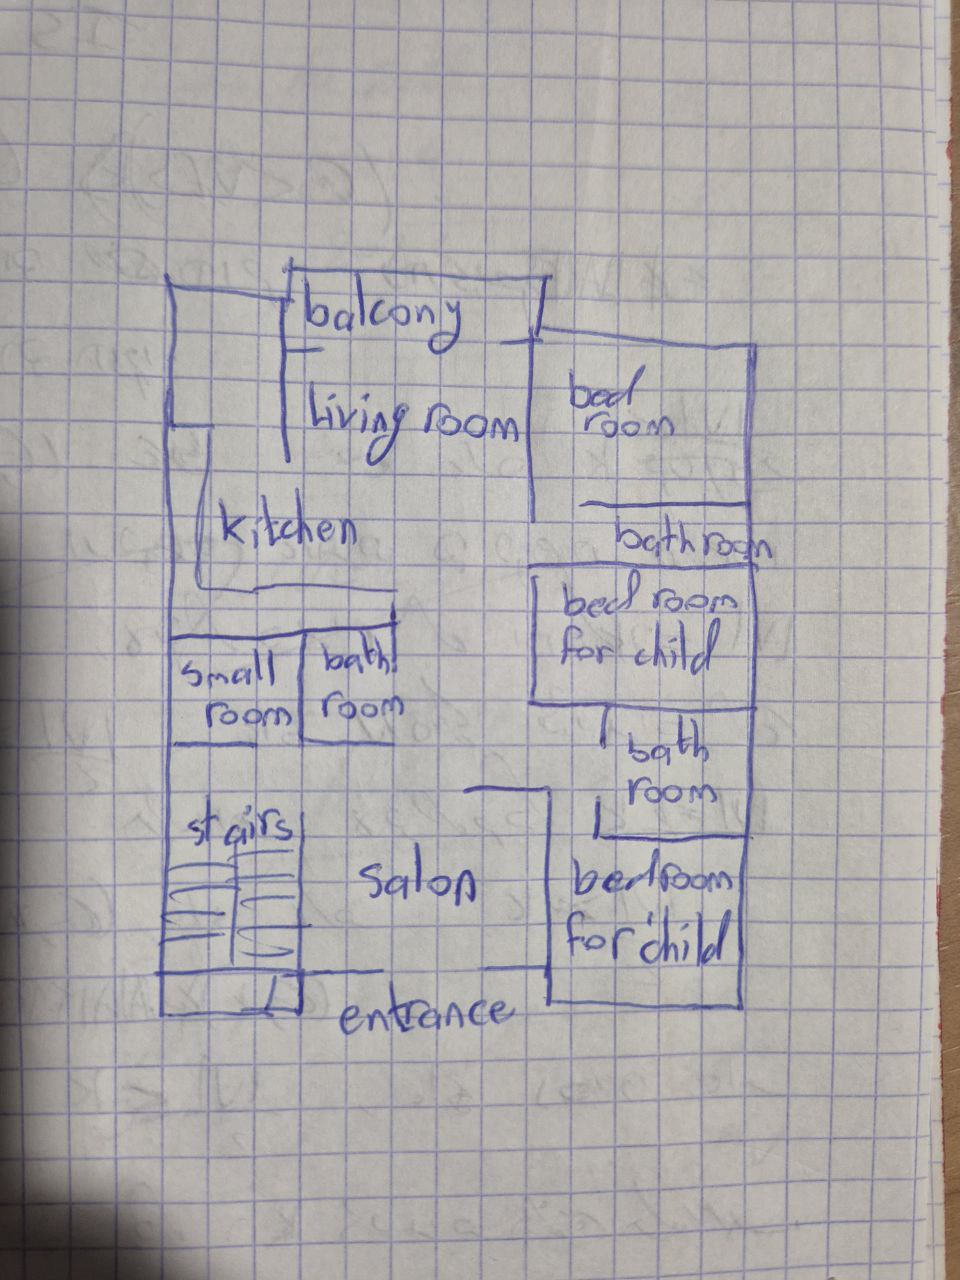 balcony
Living room
bed
room
kitchen
bathroom
bed room
for child
small
room
bath
room
bath
room
stairs
salon
bedroom
for child
entrance